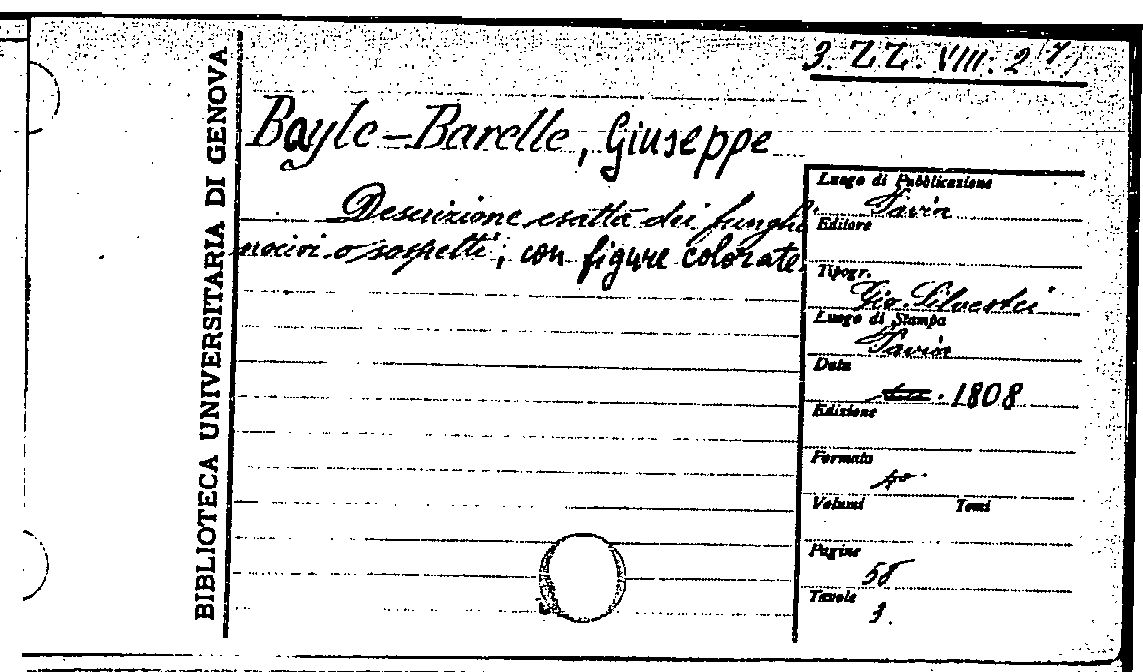 BIBLIOTECA UNIVERSITARIA DI GENOVA
3. ZZ. VIII. 2
Bayle-Barelle, Giuseppe
Descrizione esatta dei funghi
nocivi o sospetti, con figure colorate.
Luogo di Pubblicazione
Pavia
Editore
Tipogr.
Gio. Silvestri
Luogo di Stampa
Pavia
Data
1808
Edizione
Formato
4°
Volumi Tomi
Pagine
58
Tavole